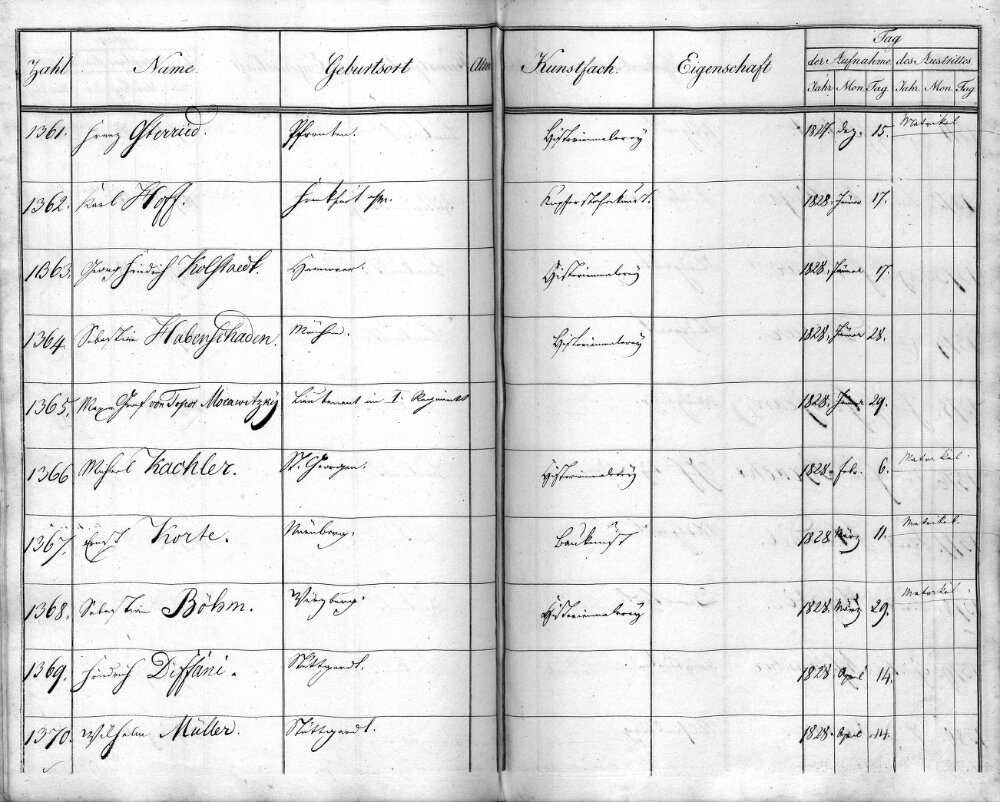 Zahl Name. Geburtsort Alter Kunstfach. Eigenschaft Tag
der Aufnahme des Austrittes
Jahr Mon Tag Jahr Mon Tag
1361. Franz Osterried. Pfronten. Historienmalerey 1827. Dez. 15. Matrikel
1362. Karl Hoff. Frankfurt a/m. Kupferstecherkunst. 1828. Jänner 17.
1363. Georg Friedrich Kolstaedt. Hannover. Historienmalerey 1828. Jänner 17.
1364. Sebastian Habenschaden. München. Historienmalerey 1828. Jänner 28.
1365. Graf von Topor Morawitzky Lieutenant im I. Regiment 1828. Jänner 29.
1366 Michael Kachler. St. Georgen. Historienmalerey 1828. Febr. 6. Matrikel.
1367. Ernst Korte. Nürnberg. Baukunst 1828. März 11. Matrikel.
1368. Sebastian Böhm. Würzburg. Historienmalerey 1828. März 29. Matrikel.
1369. Friedrich Diffani. Stuttgardt. 1828. April 14.
1370. Wilhelm Müller. Stuttgardt. 1828. April 14.